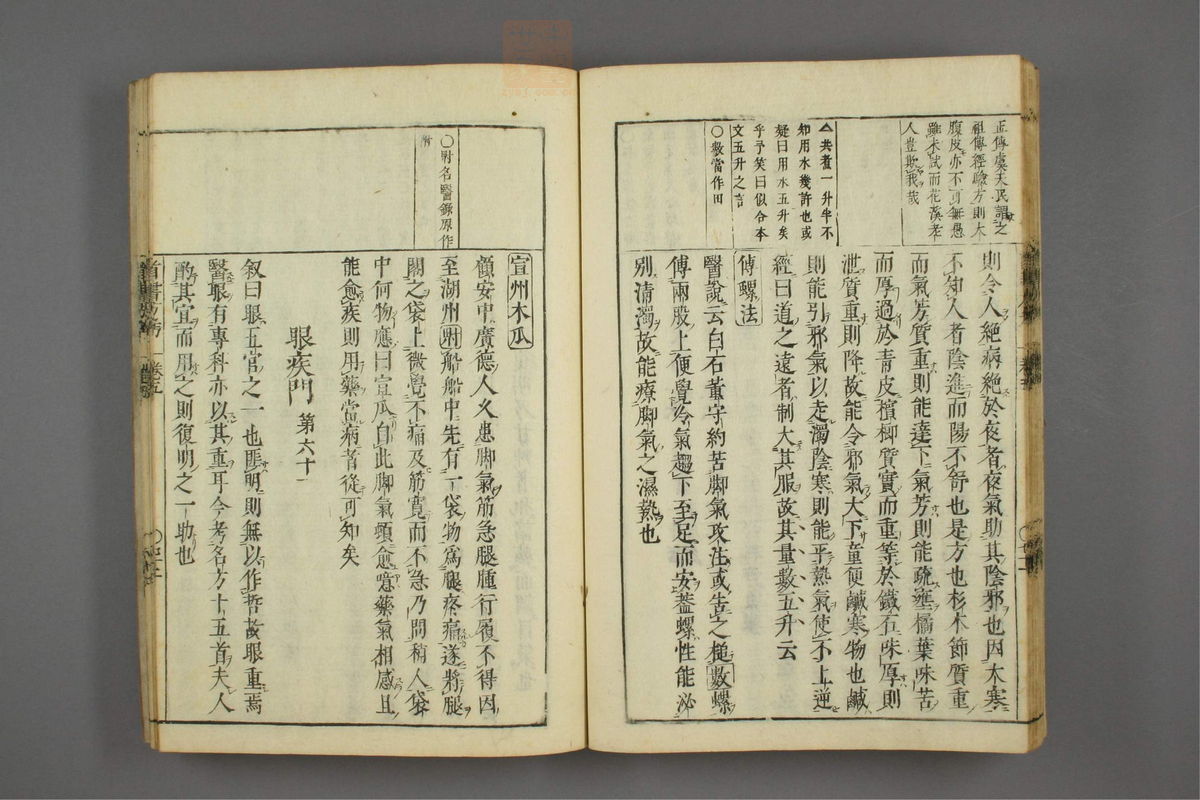 正傳虞天民謂之
祖傳經驗方則木
腹皮亦不可無愚
雖未試而花溪老
人豈欺我哉
共煮一升半不
知用水幾許也或
疑曰用水五升矣
乎予笑曰似合本
文五升之言
〇數當作田
則令人絕病絕於夜者夜氣助其陰邪也因木寒
不知人者陰進而陽不舒也是方也杉木節質重
而氣芳質重則能達下氣芳則能疏壅橘葉味苦
而厚過於青皮檳榔質實而重等於鐵石味厚則
泄質重則降故能令邪氣大下童便鹹寒物也鹹
則能引邪氣以走濁陰寒則能平熱氣使不上逆
經曰道之遠者制大其服故其量數五升云
傅螺法
醫說云白石董守約苦脚氣攻注或告之槌數螺
傅兩股上便覺冷氣趨下至足而安蓋螺性能泌
別清濁故能療脚氣之濕熱也
〇附名醫錄原作
附
宣州木瓜
顧安中廣德人久患脚氣筋急腿腫行履不得因
至湖州附船船中先有一袋物為腿疼痛遂將腿
閣之袋上微覺不痛及筋寬而不急乃問稍人袋
中何物應曰宣瓜自此脚氣頓愈噫藥氣相感且
能愈疾則用藥當病者從可知矣
眼疾門 第六十一
叙曰眼五官之一也匪明則無以作哲故眼重焉
醫眼有專科亦以其重耳今考名方十五首夫人
酌其宜而用之則復明之一助也
卷五